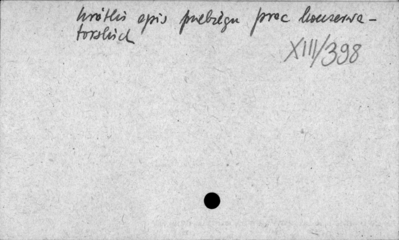 krótki opis przebiegu prac konserwa-
torskich
XIII/398